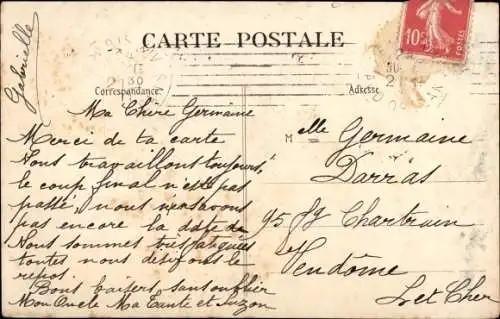 Gabrielle
CARTE POSTALE
Correspondance
Adresse
10c
POSTES
Ma Chère Germaine
Merci de ta carte
Nous travaillons toujours,
le coup final n'est pas
passé, nous ne savons
pas encore la date de
Nous sommes très fatiguées
toutes nous désirons le
repos.
Bons baisers sans oublier
Mon Oncle Ma Tante et Suzon
Melle Germaine
Darras
95 Fg Chartrain
Vendôme
L et Cher